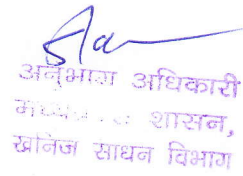 अनुभाग अधिकारी
शासन,
खनिज साधन विभाग